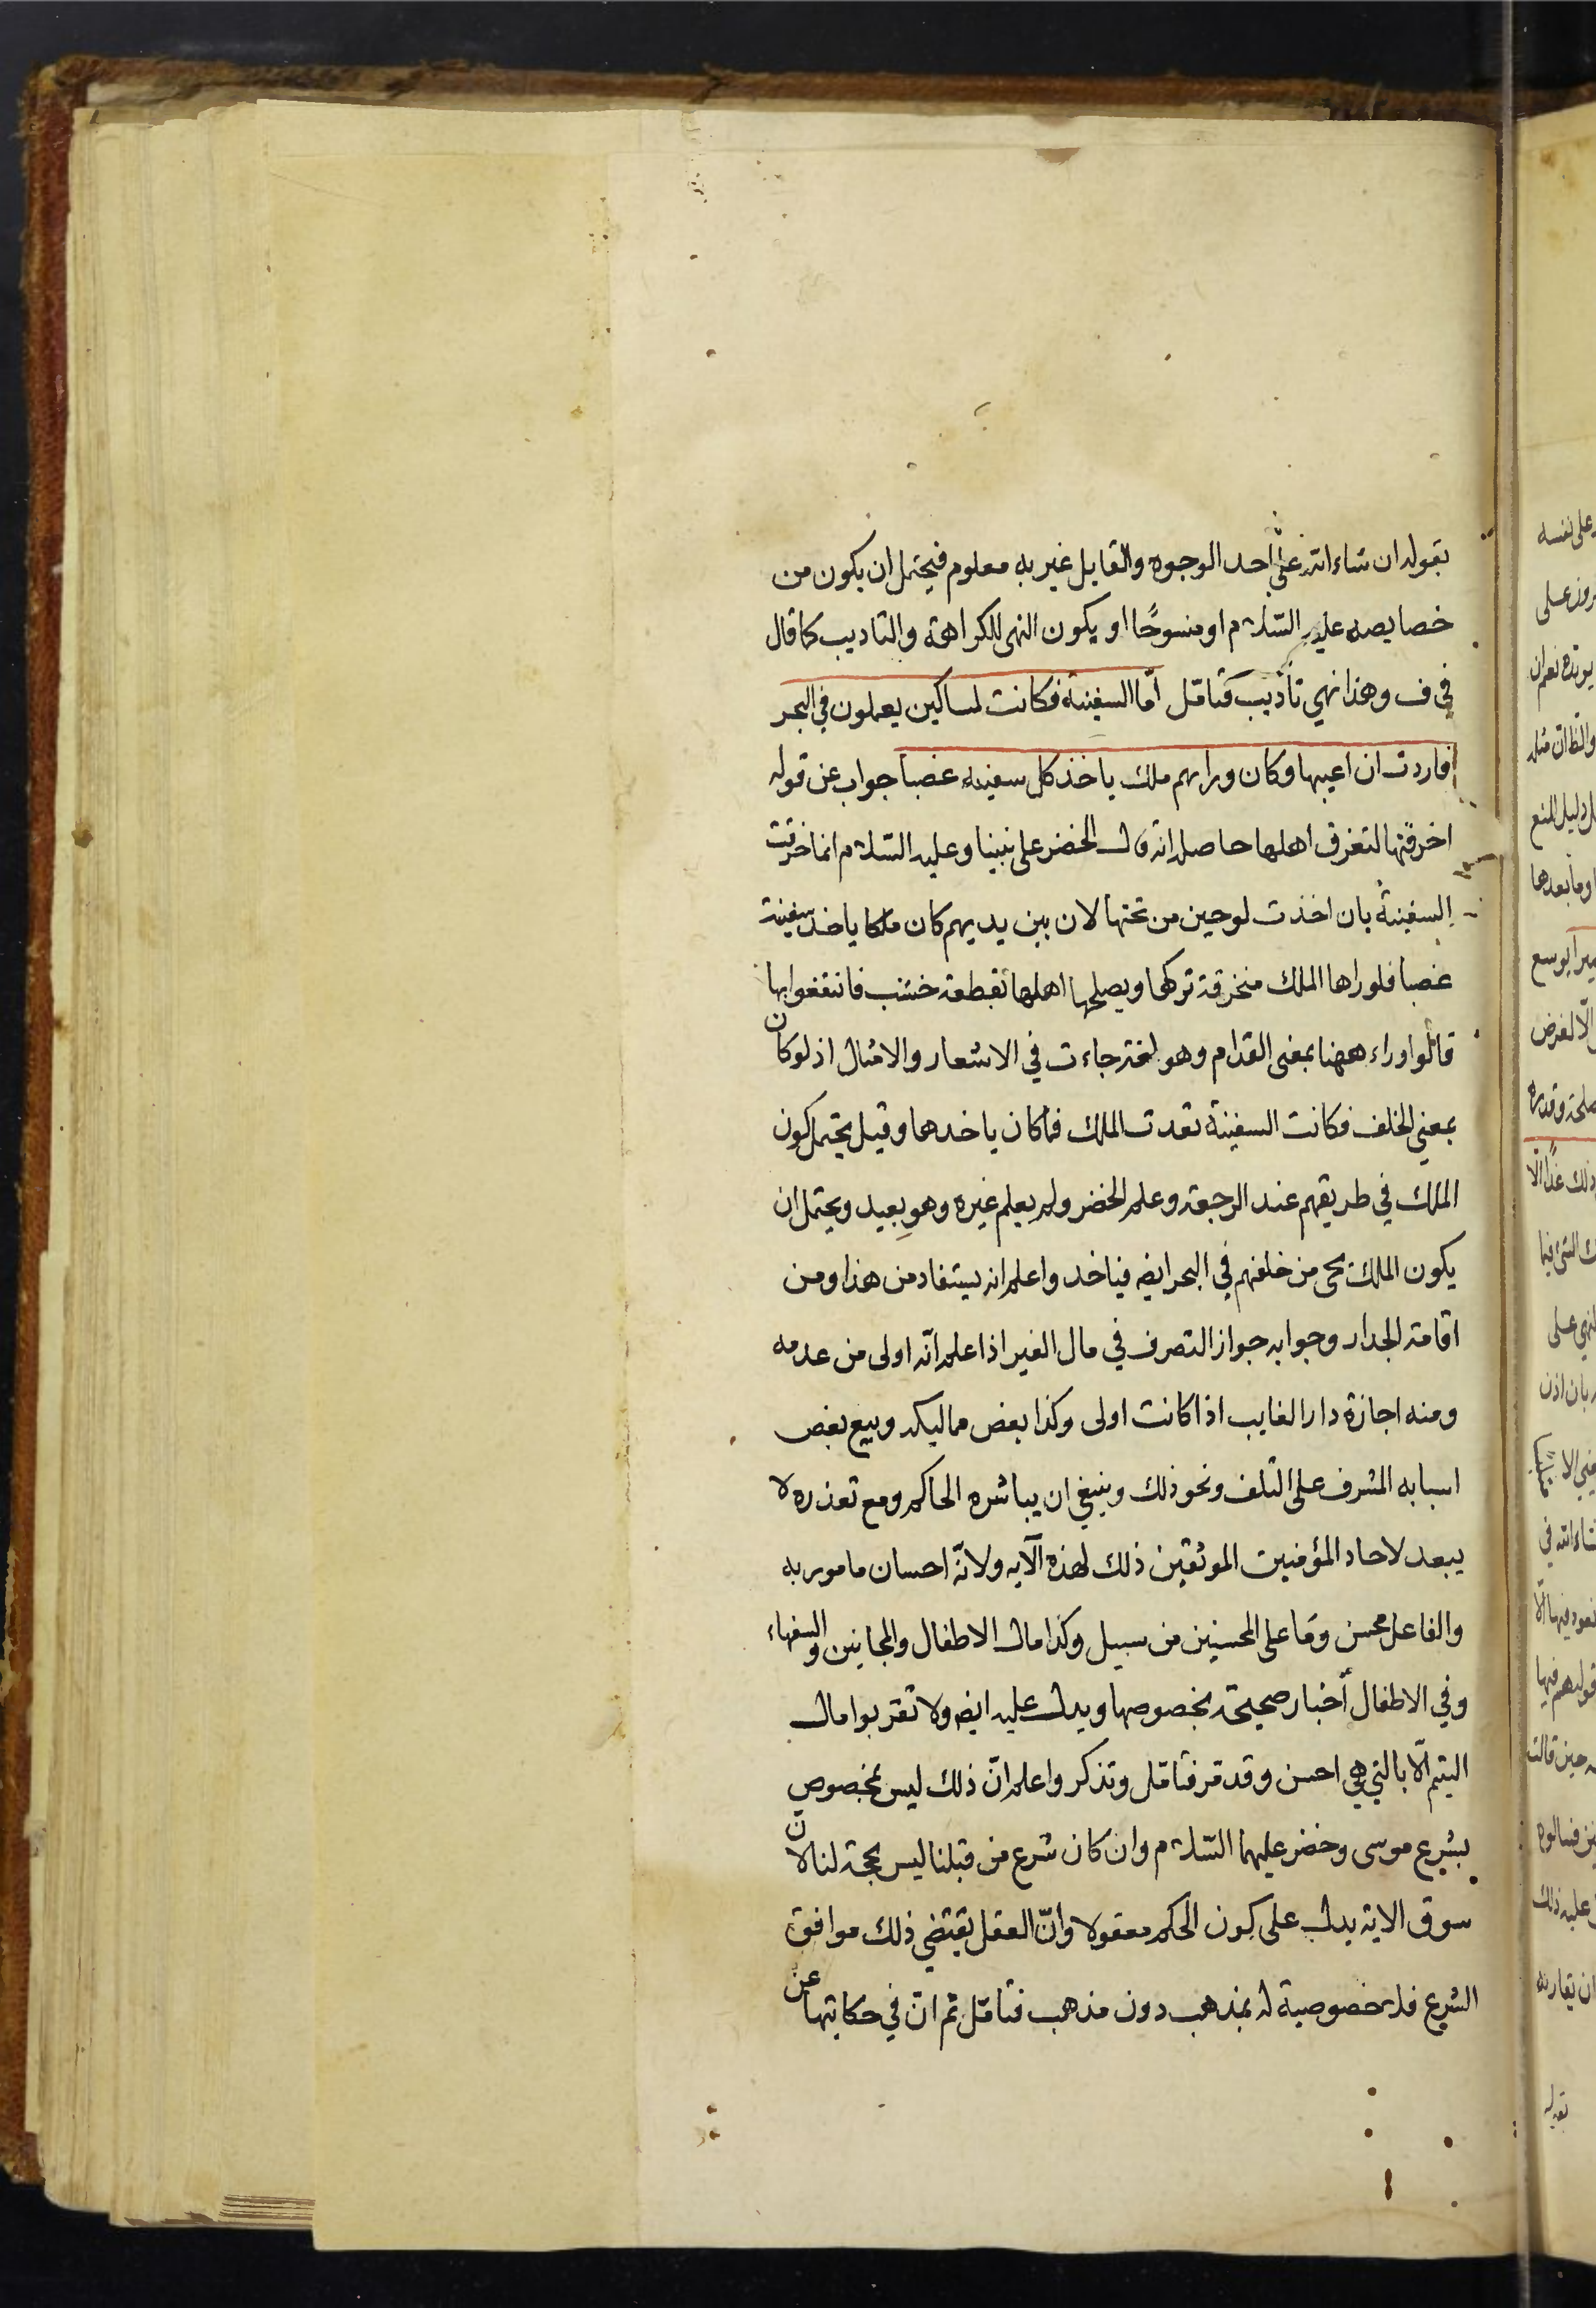 بقوله ان شاء الله على احد الوجوه والقايل غير به معلوم فيحتمل ان يكون من
خصايصه عليه السلام او منسوخًا او يكون النهى للكراهة والتاديب كما قال
في ف وهذا نهي تأديب فتامّل امّا السفينة فكانت لمساكين يعملون في البحر
فاردت ان اعيبها وكان وراىهم ملك ياخذ كل سفينه غصبا جواب عن قوله
اخرقتها لتغرق اهلها حاصله انه قال الخضر على نبينا وعليه السلام انما خرقت
السفينة بان اخذت لوحين من تحتها لان بين يديهم كان ملكا ياخذ سفينة
غصبا فلو راها الملك منخرقة تركها ويصلحها اهلها بقطعة خشب فانتفعوا بها
قالوا وراء ههنا بمعنى القدام وهو لغة جاءت في الاشعار والامثال اذ لو كان
بمعنى الخلف فكانت السفينة تعدت الملك فما كان ياخدها وقيل يحتمل كون
الملك في طريقهم عند الرجعة وعلم الخضر ولم يعلم غيره وهو بعيد ويحتمل ان
يكون الملك يجى من خلفهم في البحر ايضه فياخد واعلم انه يستفاد من هذا ومن
اقامة الجدار وجوابه جواز التصرف في مال الغير اذا علم انّه اولى من عدمه
ومنه اجازة دار الغايب اذا كانت اولى وكذا بعض مماليكه وبيع بعض
اسبابه المشرف على التلف ونحو ذلك وينبغي ان يباشره الحاكم ومع تعذره لا
يبعد لاحاد المؤمنين الموثقين ذلك لهذه الآيه ولانّه احسان مامور به
والفاعل محسن وما على المحسنين من سبيل وكذا مال الاطفال والمجانين والسفهاء
وفي الاطفال أخبار صحيحة بخصوصها ويدل عليه ايضه ولا تقربوا مال
اليتيم الّا بالتي هي احسن وقد مر فتامّل وتذكر واعلم انّ ذلك ليس بمخصوص
بشرع موسى وخضر عليهما السّلام وان كان شرع من قبلنا ليس بحجة لنا لانّ
سوق الاية يدل على كون الحكم معقولا وانّ العقل يقتضي ذلك موافق
الشرع فلا خصوصية له بمذهب دون مذهب فتامّل ثم انّ في حكايتها عن